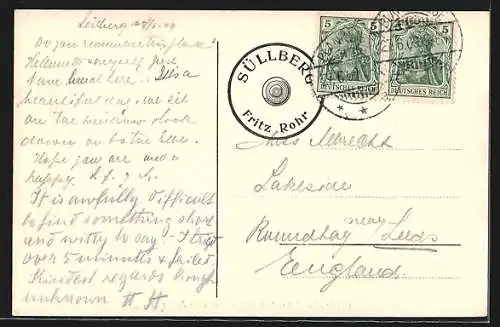 Süllberg
Do you remember this place?
Helmuth & myself just
have lunch here. It is a
beautiful day, we sit
at the window & look
down on to the Elbe.
Hope you are well &
happy.
It is awfully difficult
to find something short
and witty to say. I tried
over 5 minutes & failed.
Kindest regards though
unknown H. H.
SÜLLBERG
Fritz Rohr
5 5
DEUTSCHES REICH
5 5
DEUTSCHES REICH
Miss Albrecht
Lakeside
near
Roundhay Leeds
England